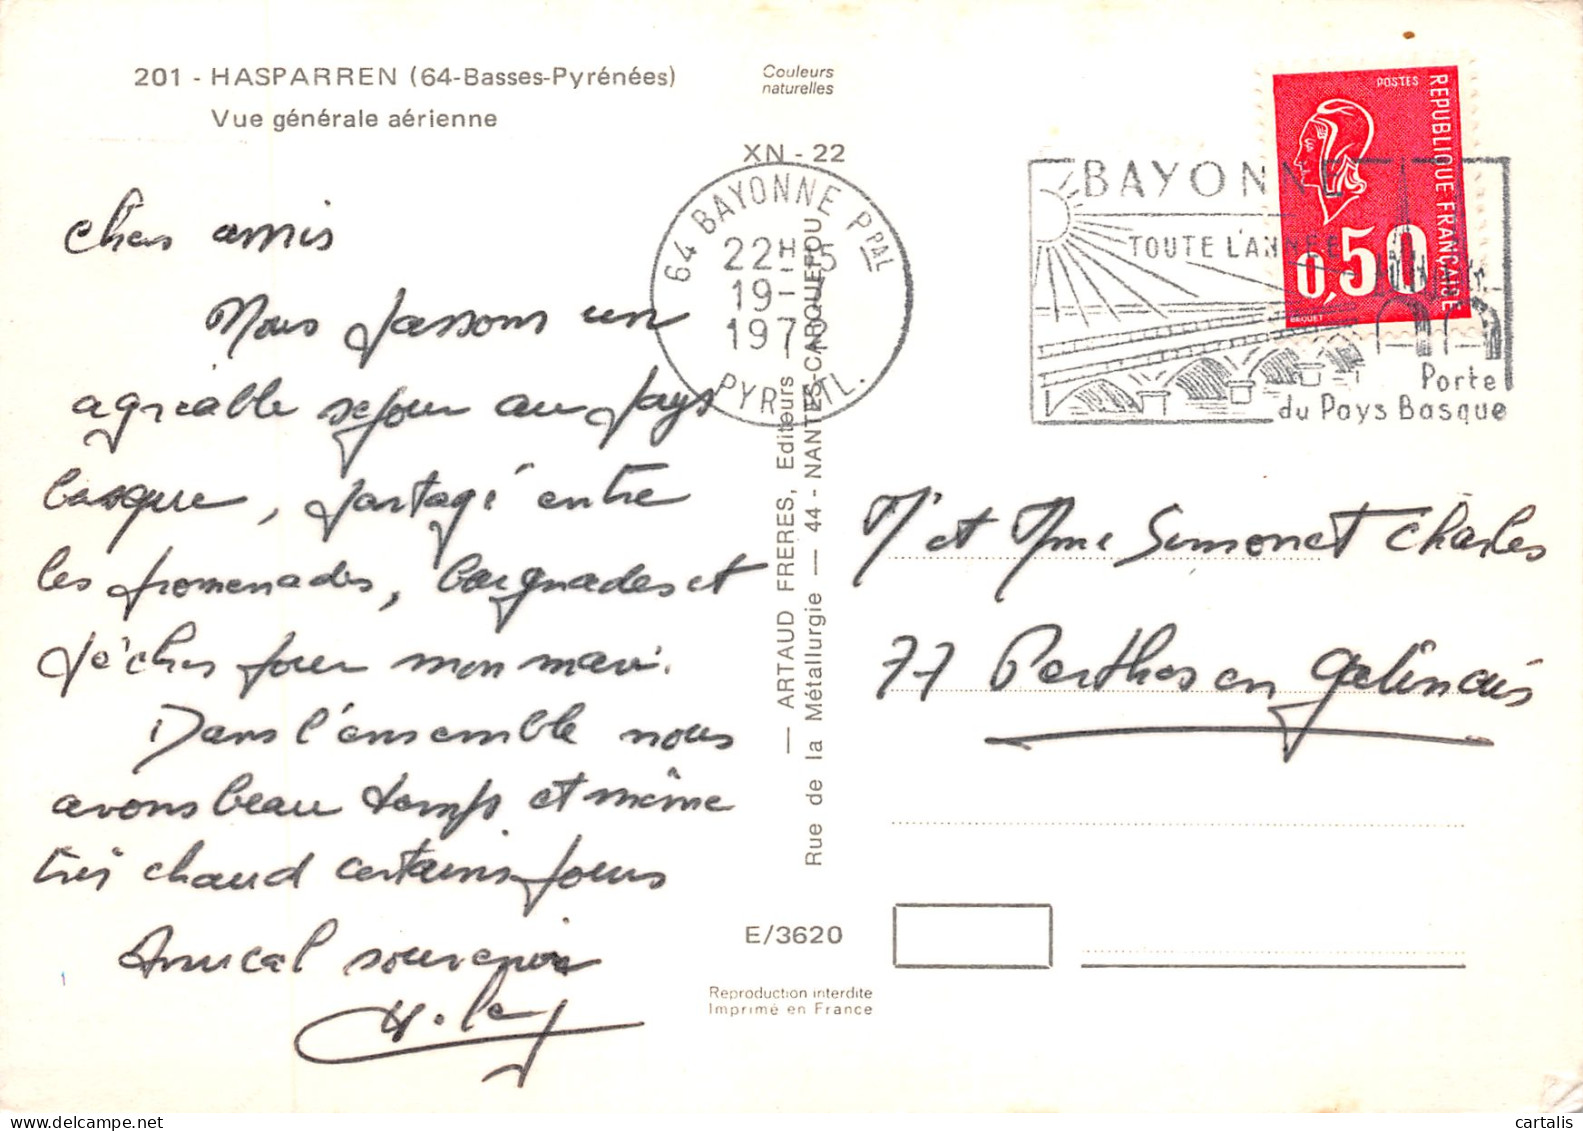 201 - HASPARREN (64-Basses-Pyrénées)
Vue générale aérienne
Couleurs
naturelles
XN - 22
64 BAYONNE PPAL
22H-15
19-7
1972
PYR-ATL.
BAYONNE
TOUTE L'ANNÉE
Porte
du Pays Basque
POSTES
REPUBLIQUE FRANÇAISE
0,50
BEQUET
Chers amis
Nous passons un
agréable séjour au pays
basque, partagé entre
les promenades, baignades et
pêches pour mon mari.
Dans l'ensemble nous
avons beau temps et même
très chaud certains jours
Amical souvenir
— ARTAUD FRERES, Editeurs
Rue de la Métallurgie — 44 - NANTES-CARQUEFOU
Mr et Mme Simonet Charles
77 Perthes en gatinais
E/3620
Reproduction interdite
Imprimé en France
1
cartalis